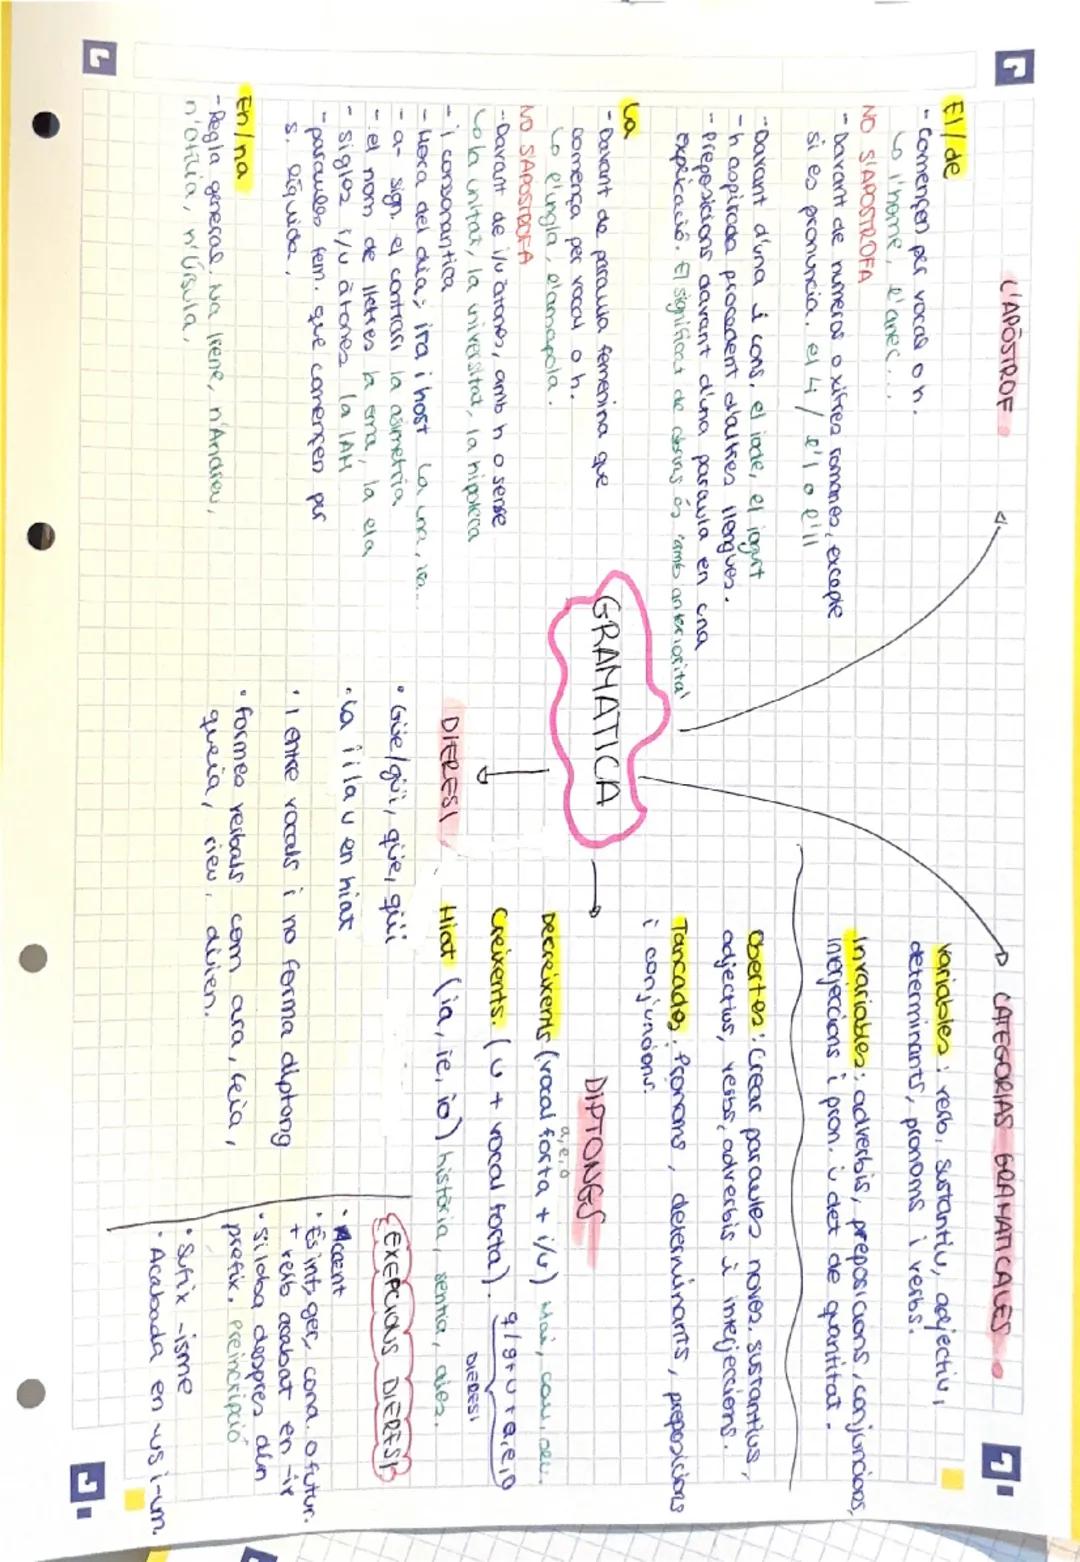 GRAMATICA
L'APÒSTROF
El/de
- Començen per vocal o h.
↳ l'home, l'anec...
NO S'APOSTROFA
- Davant de numeros o xifres romanes, excepte
si es pronuncia. el 4 / l'1 o l'11
- Davant d'una i cons. el iode, el iogurt
- h aspirada procedent d'altres llengues.
- Preposicions davant d'una paraula en una
explicació. El significat de abans és "amb anterioritat
La
- Davant de paraula femenina que
comença per vocal o h.
↳ l'ungla, l'amapola.
NO S'APOSTROFA
- Davant de i/u àtones, amb h o sense
↳ la unitat, la universitat, la hipoteca
- i consonantica
- Hora del dia; ira i host La una, ira...
- a- sign. el contrari la asimetria
- el nom de lletres la erra, la ela
- sigles i/u àtones la IAH
- paraules fem. que començen per
s. líquida.
En/na
- Regla general. Na Irene, n'Andreu,
n'Úrsula.
CATEGORIAS GRAMATICALES
Variables: verb, sustantiu, adjectiu,
determinants, pronoms i verbs.
Invariables: adverbis, preposicions, conjuncions,
interjeccions i pron. i det de quantitat.
Obertes: Crear paraules noves. sustantius,
adjectius, verbs, adverbis i interjeccions.
Tancades; Pronoms, determinants, preposicions
i conjuncions.
DIPTONGS
a, e, o
Decreixents (vocal forta + i/u) Mai, cau,
Creixents. (u + vocal forta). q/g + u + a, e, o
DIERESI
Hiat (ia, ie, io) història, sentia,
DIERESI
• Güe/güi, qüe, qüi
• La i i la u en hiat
• I entre vocals i no forma diptong
• formes verbals com ara, feia,
queia, rieu, duien.
EXEPCIONS DIERESI
• Accent
• És inf, ger, cond. o futur.
+ verb acabat en -ir
• Síl·laba despres d'un
prefix, preinscripció
• Sufix -isme
• Acabada en -us i -um.